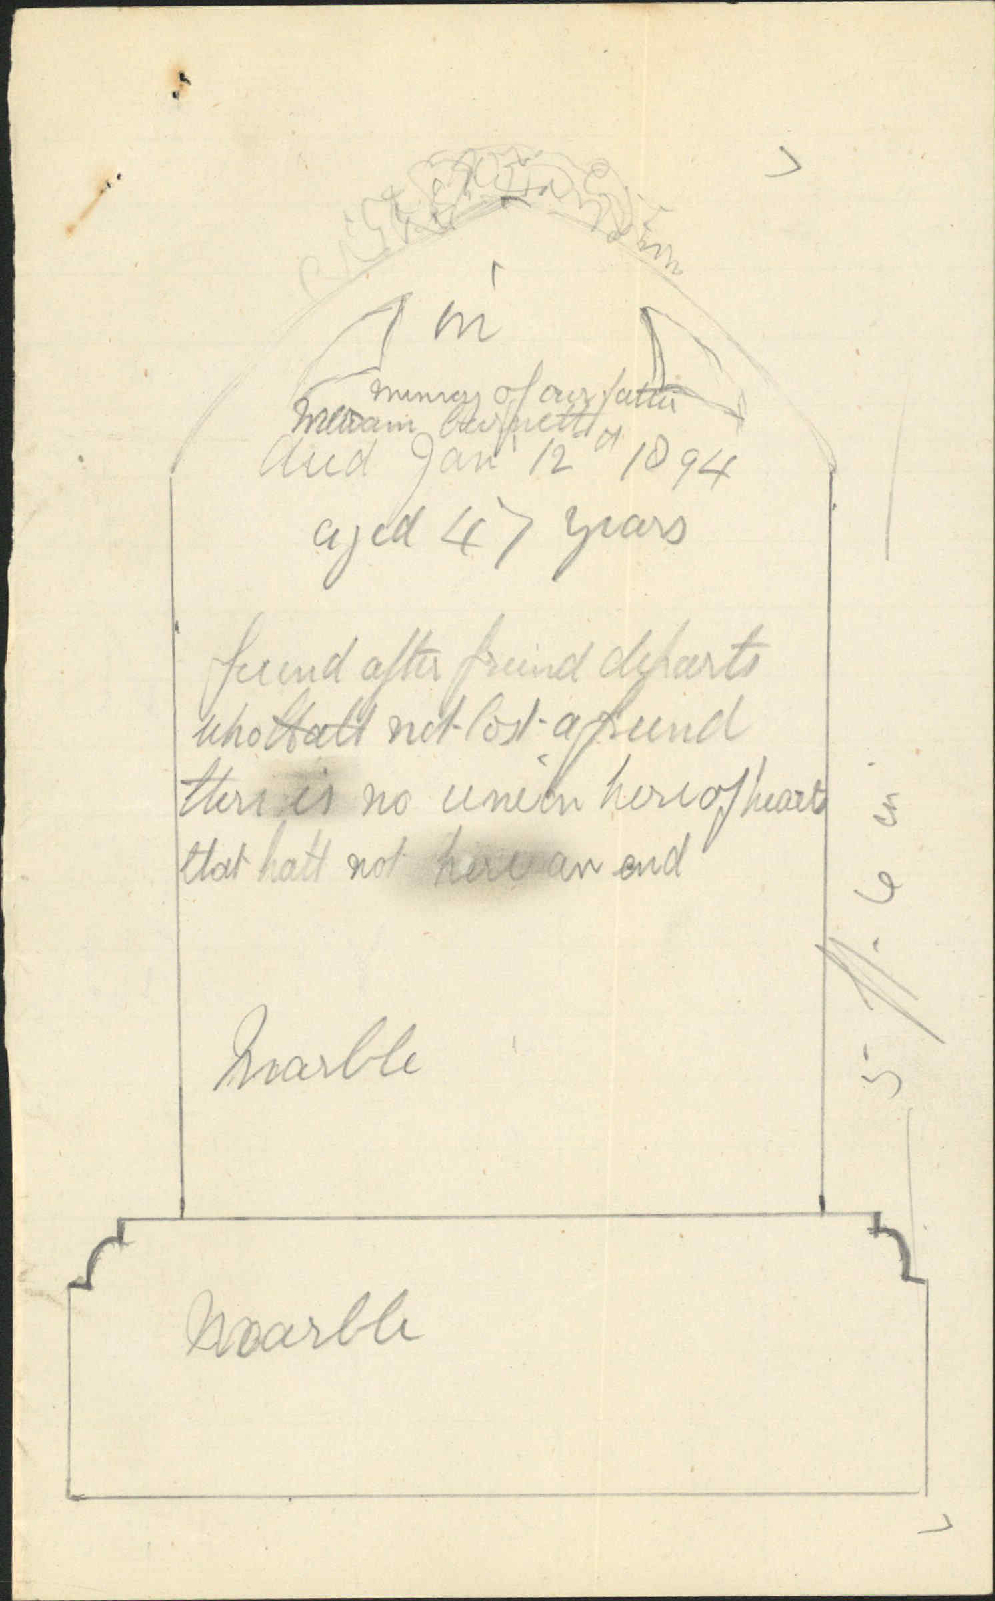 in
memory of our father
died Jan 12th 1894
aged 47 years
friend after friend departs
who hatt not lost a friend
there is no union here of hearts
that hatt not here an end
5 ft. 6 in
Marble
Marble